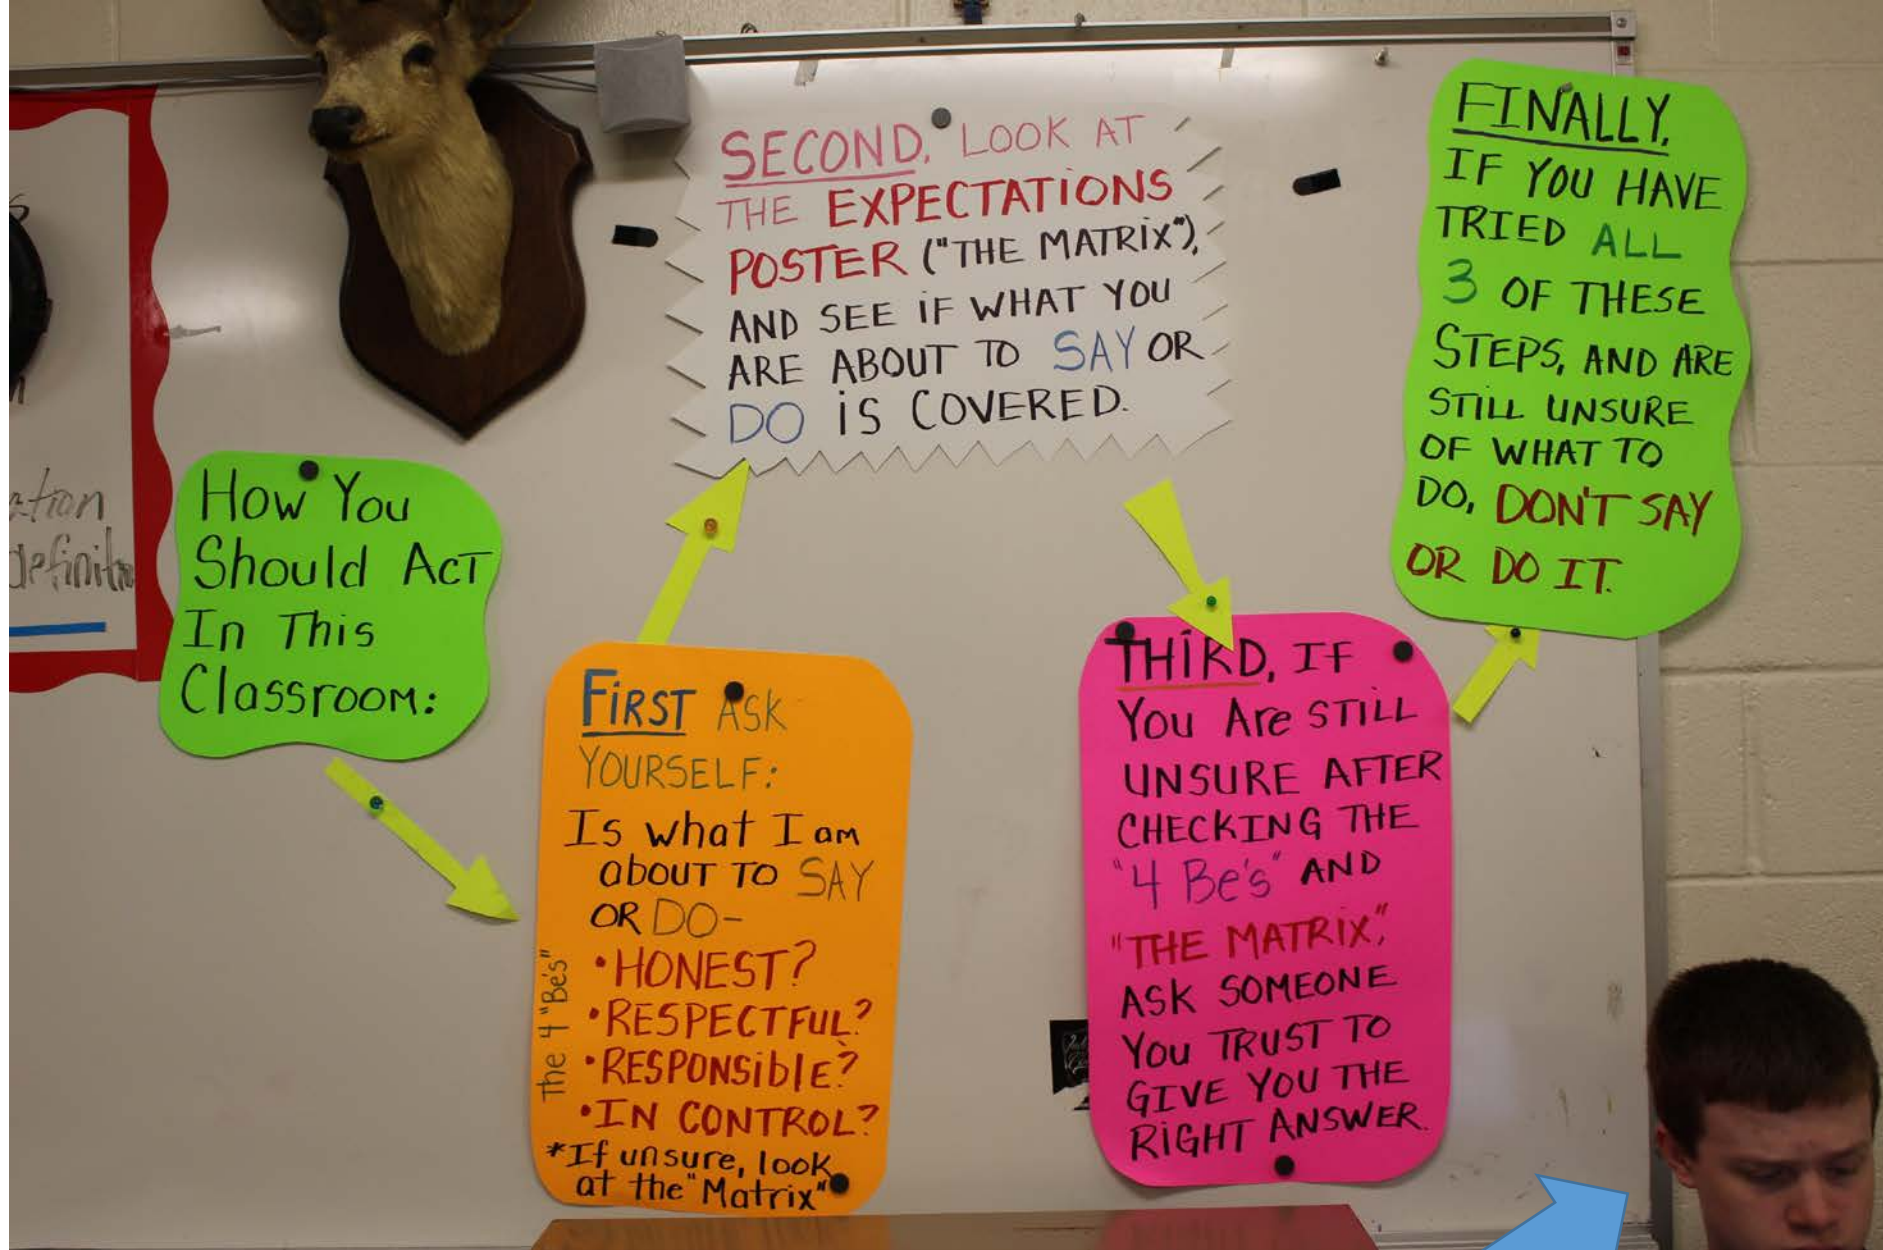 ation
definitio
How You
Should Act
In This
Classroom:
FIRST ASK
YOURSELF:
Is what I am
about TO SAY
OR DO-
The 4 "Be's"
•HONEST?
•RESPECTFUL?
•RESPONSIBLE?
•IN CONTROL?
*If unsure, look
at the "Matrix"
SECOND, LOOK AT
THE EXPECTATIONS
POSTER ("THE MATRIX"),
AND SEE IF WHAT YOU
ARE ABOUT TO SAY OR
DO IS COVERED.
THIRD, IF
You Are STILL
UNSURE AFTER
CHECKING THE
"4 Be's" AND
"THE MATRIX",
ASK SOMEONE
You TRUST TO
GIVE YOU THE
RIGHT ANSWER.
FINALLY,
IF YOU HAVE
TRIED ALL
3 OF THESE
STEPS, AND ARE
STILL UNSURE
OF WHAT TO
DO, DON'T SAY
OR DO IT.